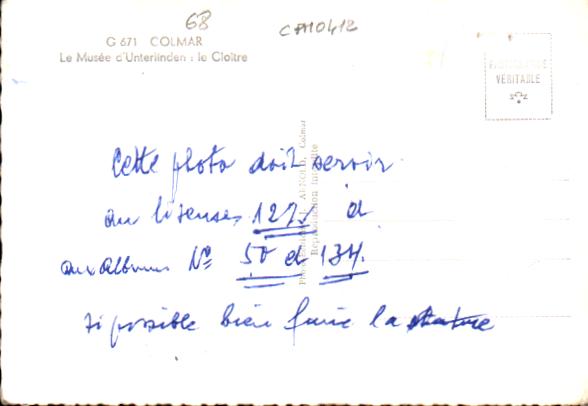 68
CPM0412
G 671 COLMAR
Le Musée d'Unterlinden : le Cloître
VÉRITABLE
Reproduction interdite
Cette photo doit servir
au liseuses 127 et
aux albums N° 50 et 134.
si possible bien faire la